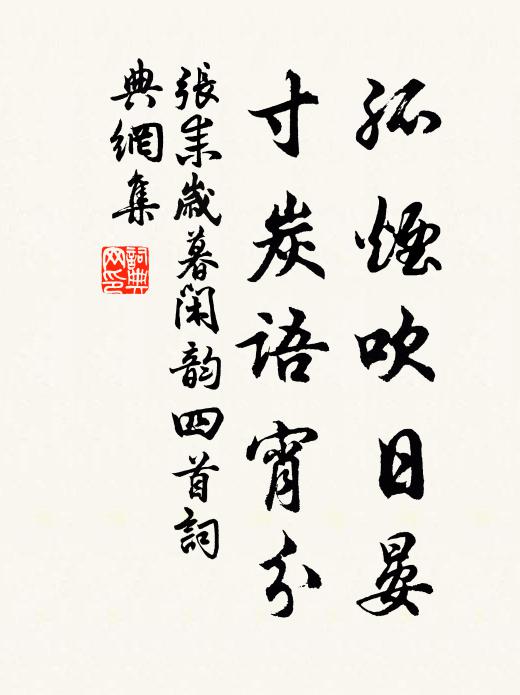 孤煙吹日晏
寸炭語宵分
張耒歲暮閑韵四首詞
典網集
詞典
网印